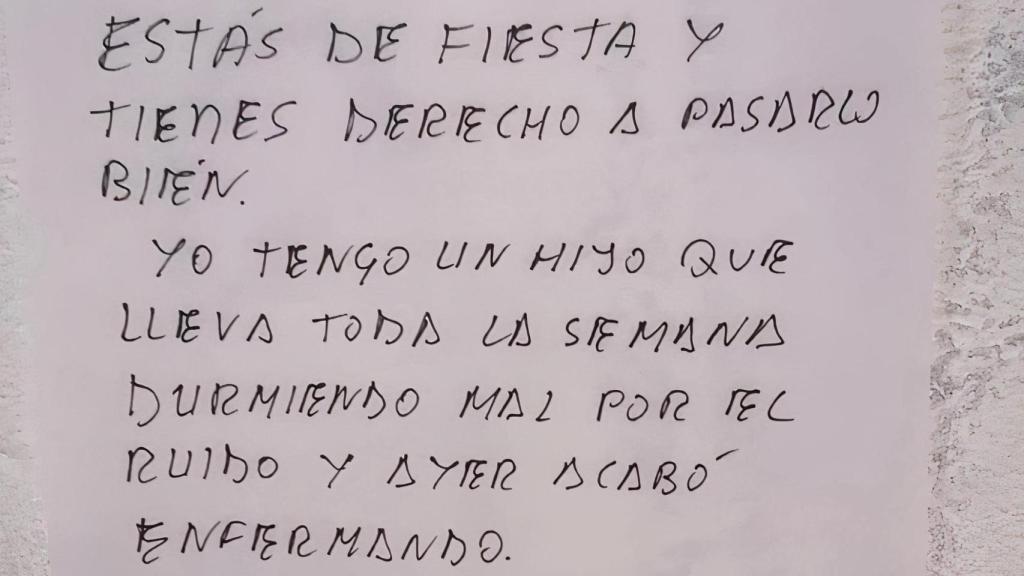 ESTÁS DE FIESTA Y
TIENES DERECHO A PASARLO
BIÉN.
YO TENGO UN HIJO QUE
LLEVA TODA LA SEMANA
DURMIENDO MAL POR EL
RUIDO Y AYER ACABÓ
ENFERMANDO.